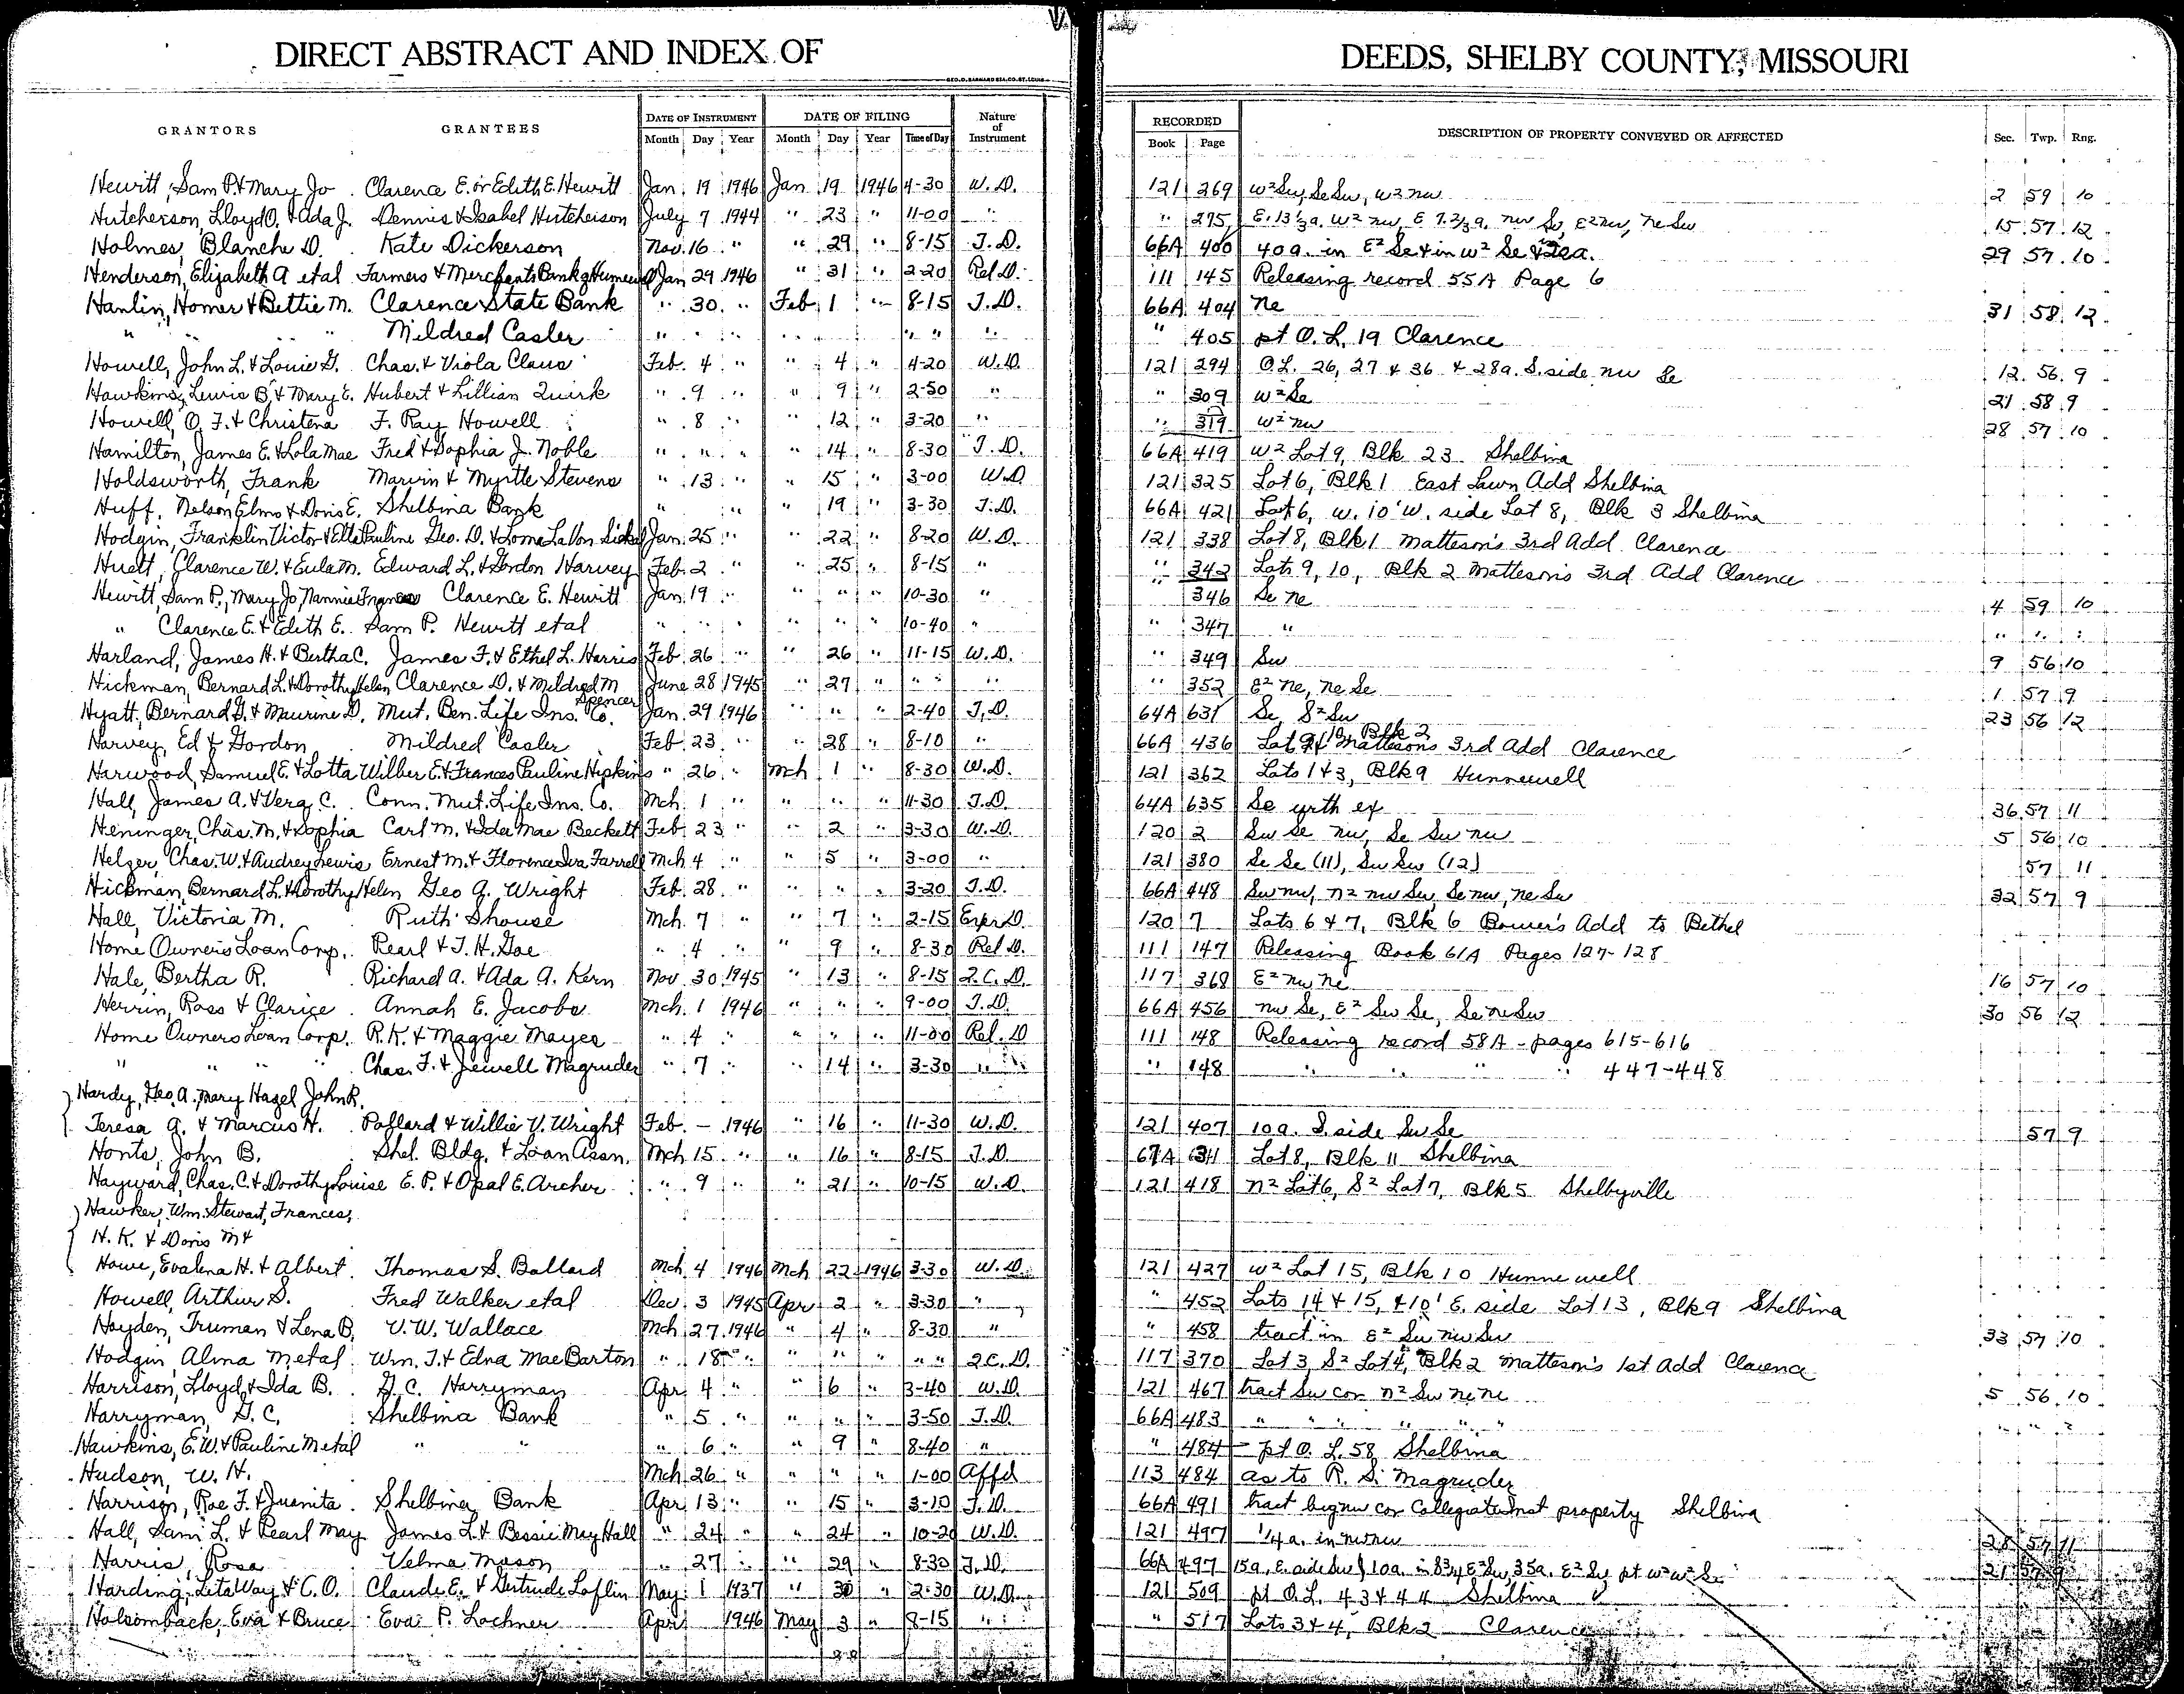 DIRECT ABSTRACT AND INDEX OF DEEDS, SHELBY COUNTY, MISSOURI
GEO. D. BARNARD STA. CO. ST. LOUIS
GRANTORS GRANTEES DATE OF INSTRUMENT DATE OF FILING Nature of Instrument RECORDED DESCRIPTION OF PROPERTY CONVEYED OR AFFECTED Sec. Twp. Rng.
Month Day Year Month Day Year Time of Day Book Page
Hewitt, Sam P. & Mary Jo Clarence E. or Edith E. Hewitt Jan. 19 1946 Jan 19 1946 4-30 W.D. 121 269 W² Sw, Se Sw, W² nw 2 59 10
Hutcherson, Lloyd O. & Ada J. Dennis & Isabel Hutcherson July 7 1944 " 23 " 11-00 " " 275 E. 13⅓ a. W² nw, E 7.⅔ a. nw Sw, E² nw, ne Sw 15 57 12
Holmes, Blanche D. Kate Dickerson Nov. 16 " " 29 " 8-15 T.D. 66A 400 40a. in E² Se & in W² Se 29 57 10
Henderson, Elizabeth A etal Farmers & Merchants Bank of Hunnewell Jan 29 1946 " 31 " 2-20 Rel D. 111 145 Releasing record 55A Page 6
Hanlin, Homer & Bettie M. Clarence State Bank " 30 " Feb 1 " 8-15 T.D. 66A 404 Ne 31 58 12
" " " Mildred Casler " " " " " " " " " " 405 pt O. L. 19 Clarence
Howell, John L. & Louie G. Chas. & Viola Claus Feb. 4 " " 4 " 4-20 W.D. 121 294 O.L. 26, 27 & 36 & 28a. S. side nw Se 12 56 9
Hawkins, Lewis B. & Mary E. Hubert & Lillian Quirk " 9 " " 9 " 2-50 " " 309 W² Se 21 58 9
Howell, O. F. & Christena F. Ray Howell " 8 " " 12 " 3-20 " " 319 W² nw 28 57 10
Hamilton, James E. & Lola Mae Fred & Sophia J. Noble " " " " 14 " 8-30 T.D. 66A 419 W² Lot 9, Blk 23 Shelbina
Holdsworth, Frank Marvin & Myrtle Stevens " 13 " " 15 " 3-00 W.D 121 325 Lot 6, Blk 1 East Lawn Add Shelbina
Huff, Nelson Elmo & Doris E. Shelbina Bank " " " 19 " 3-30 T.D. 66A 421 Lot 6, W. 10' W. side Lot 8, Blk 3 Shelbina
Hodgin, Franklin Victor & Etta Pauline Geo. D. & Loma LaVon Sickel Jan. 25 " " 22 " 8-20 W.D. 121 338 Lot 8, Blk 1 Matteson's 3rd Add Clarence
Huett, Clarence W. & Eula M. Edward L. & Gordon Harvey Feb. 2 " " 25 " 8-15 " " 342 Lots 9, 10, Blk 2 Matteson's 3rd Add Clarence
Hewitt, Sam P., Mary Jo, Nannie Frances Clarence E. Hewitt Jan. 19 " " " " 10-30 " 346 Se Ne 4 59 10
" Clarence E. & Edith E. Sam P. Hewitt etal " " " " " " 10-40 " " 347 " " " "
Harland, James H. & Bertha C. James F. & Ethel L. Harris Feb. 26 " " 26 " 11-15 W.D. " 349 Sw 9 56 10
Hickman, Bernard L. & Dorothy Helen Clarence D. & Mildred M Spencer June 28 1945 " 27 " " " " " 352 E² Ne, Ne Se 1 57 9
Hyatt, Bernard G. & Maurine D. Mut. Ben. Life Ins. Co. Jan. 29 1946 " " " 2-40 T.D. 64A 631 Se, S² Sw 23 56 12
Harvey, Ed & Gordon Mildred Casler Feb. 23 " " 28 " 8-10 " 66A 436 Lot 9 & 10, Blk 2 Mattesons 3rd Add Clarence
Harwood, Samuel E. & Lotta Wilber E. & Frances Pauline Hipkins " 26 " Mch 1 " 8-30 W.D. 121 362 Lots 1 & 3, Blk 9 Hunnewell
Hall, James A. & Vera C. Conn. Mut. Life Ins. Co. Mch. 1 " " " " 11-30 T.D. 64A 635 Se wrth ex 36 57 11
Heninger, Chas. M. & Sophia Carl M. & Ida Mae Beckett Feb. 23 " " 2 " 3-30 W.D. 120 2 Sw Se nw, Se Sw nw 5 56 10
Helzer, Chas. W. & Audrey Lewis Ernest M. & Florence Iva Farrell Mch 4 " " 5 " 3-00 " 121 380 Se Se (11), Sw Sw (12) 57 11
Hickman, Bernard L. & Dorothy Helen Geo A. Wright Feb. 28 " " " " 3-20 T.D. 66A 448 Sw nw, n² nw Sw, Se nw, ne Sw 32 57 9
Hall, Victoria M. Ruth Shouse Mch. 7 " " 7 " 2-15 Exr D. 120 7 Lots 6 & 7, Blk 6 Bower's Add to Bethel
Home Owners Loan Corp. Pearl & T. H. Goe " 4 " " 9 " 8-30 Rel D. 111 147 Releasing Book 61A Pages 127-128
Hale, Bertha R. Richard A. & Ada A. Kern Nov 30 1945 " 13 " 8-15 Q.C.D. 117 368 E² nw ne 16 57 10
Herrin, Ross & Clarice Annah E. Jacobs Mch. 1 1946 " " " 9-00 T.D. 66A 456 nw Se, E² Sw Se, Se ne Sw 30 56 12
Home Owners Loan Corp. R.K. & Maggie Mayes " 4 " " " " 11-00 Rel. D 111 148 Releasing record 58A - pages 615-616
" " " Chas. F. & Jewell Magruder " 7 " " 14 " 3-30 " " 148 " " " " 447-448
Hardy, Geo. A., Mary Hazel John R.
Teresa A. & Marcus H. Pollard & Willie V. Wright Feb. - 1946 " 16 " 11-30 W.D. 121 407 10a. S. side Sw Se 57 9
Honts, John B. Shel. Bldg. & Loan Assn. Mch 15 " " 16 " 8-15 T.D. 67A 311 Lot 8, Blk 11 Shelbina
Hayward, Chas. C. & Dorothy Louise E. P. & Opal E. Archer " 9 " " 21 " 10-15 W.D. 121 418 N² Lot 6, S² Lot 7, Blk 5 Shelbyville
Hawker, Wm. Stewart, Frances,
H. K. & Doris M &
Howe, Evalena H. & Albert Thomas S. Ballard Mch 4 1946 Mch 22 1946 3-30 W.D. 121 427 W² Lot 15, Blk 10 Hunnewell
Howell, Arthur S. Fred Walker etal Dec. 3 1945 Apr 2 " 3-30 " " 452 Lots 14 & 15, & 10' E. side Lot 13, Blk 9 Shelbina
Hayden, Truman & Lena B. V. W. Wallace Mch 27 1946 " 4 " 8-30 " " 458 tract in E² Sw nw Sw 33 57 10
Hodgin Alma M etal Wm. T. & Edna Mae Barton " 18 " " " " " " Q.C.D. 117 370 Lot 3, S² Lot 4, Blk 2 Matteson's 1st Add Clarence
Harrison, Lloyd & Ida B. G. C. Harryman Apr 4 " " 6 " 3-40 W.D. 121 467 tract Sw cor N² Sw ne ne 5 56 10
Harryman, G. C. Shelbina Bank " 5 " " " " 3-50 T.D. 66A 483 " " " " " " " " "
Hawkins, E.W. & Pauline M etal " " " 6 " " 9 " 8-40 " " 484 pt O. L. 58 Shelbina
Hudson, W. H. Mch 26 " " " " 1-00 Affd 113 484 as to R. S. Magruder
Harrison, Roe F. & Juenita Shelbina Bank Apr 13 " " 15 " 3-10 T.D. 66A 491 tract beg nw cor Collegiate Inst property Shelbina
Hall, Sam L. & Pearl May James L. & Bessie May Hall " 24 " " 24 " 10-20 W.D. 121 497 ¼ a. in nw nw 28 57 11
Harris, Rosa Velma Mason " 27 " " 29 " 8-30 T.D. 66A 497 15a. E. side Sw 10a. in 35a. E² Sw pt W² W² Se 21 57 9
Harding, Leta Way & C. O. Claude E. & Gertrude Loflin May 1 1937 " 30 " 2-30 W.D. 121 509 pt O.L. 43 & 44 Shelbina
Holsomback, Eva & Bruce Eva P. Lochner Apr 1946 May 3 " 8-15 " " 517 Lots 3 & 4, Blk 2 Clarence